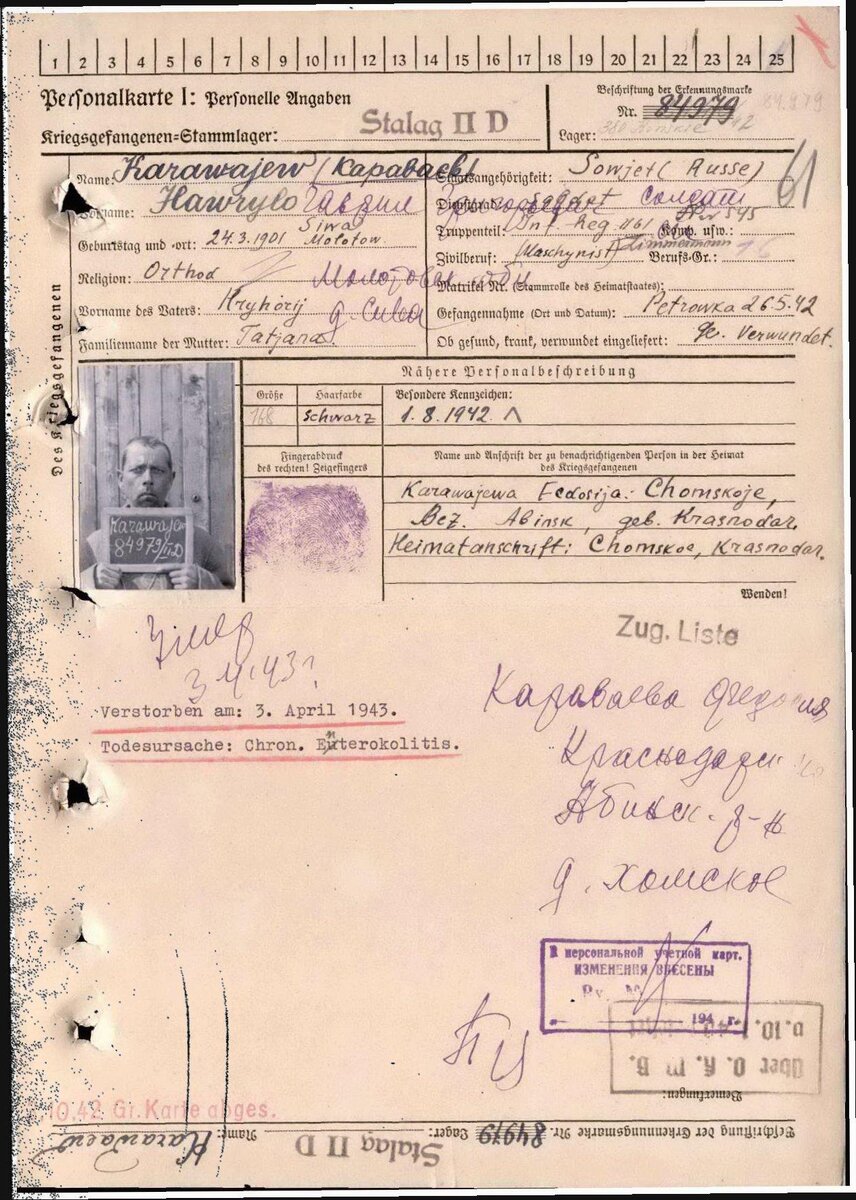 1 2 3 4 5 6 7 8 9 10 11 12 13 14 15 16 17 18 19 20 21 22 23 24 25
Personalkarte I: Personelle Angaben
Kriegsgefangenen-Stammlager: Stalag II D
Beschriftung der Erkennungsmarke
Nr. 84979 84979
Lager:
61
Des Kriegsgefangenen
Name: Karawajew (Караваев)
Vorname: Hawrylo Гаврил
Geburtstag und -ort: 24.3.1901 Siwa Molotow
Religion: Orthod Молотовск
Vorname des Vaters: Hryhorij д. Сива
Familienname der Mutter: Tatjana
Staatsangehörigkeit: Sowjet (Russe)
Dienstgrad: Soldat солдат
Truppenteil: Inf. Reg. 1161 Komp. usw.: 545
Zivilberuf: (Maschynist) Zimmermann Berufs-Gr.: 16
Matrikel Nr. (Stammrolle des Heimatstaates):
Gefangennahme (Ort und Datum): Petrowka 26.5.42
Ob gesund, krank, verwundet eingeliefert: Verwundet.
Nähere Personalbeschreibung
Größe Haarfarbe Besondere Kennzeichen:
168 Schwarz 1.8.1942.
Fingerabdruck
des rechten! Zeigefingers
Name und Anschrift der zu benachrichtigenden Person in der Heimat
des Kriegsgefangenen
Karawajewa Fedosija: Chomskoje,
Bez. Abinsk, geb. Krasnodar.
Heimatanschrift: Chomskoe, Krasnodar.
Karawajew
84979/IID
Wenden!
Умер
3.4.43г
Zug. Liste
Verstorben am: 3. April 1943.
Todesursache: Chron. Enterokolitis.
Караваева Федосия
Краснодарск
Абинск. р-н
д. Хомское
В персональной учетной карт.
ИЗМЕНЕНИЯ ВНЕСЕНЫ
194 г.
über O. K. W. B.
Bemerkungen:
10.42 Gr. Karte abges.
Beschriftung der Erkennungsmarke Nr. 84979 Lager: Stalag II D Name: Karawajew